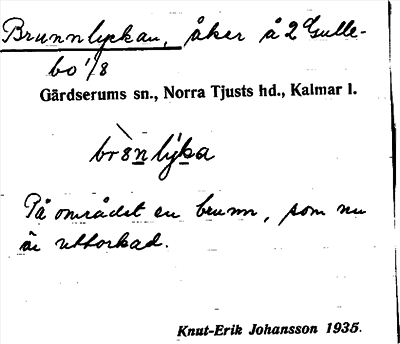 Brunnlyckan, åker å 2 Gulle-
bo 1/8
Gärdserums sn., Norra Tjusts hd., Kalmar l.
På området en brunn, som nu
är uttorkad.
Knut-Erik Johansson 1935.